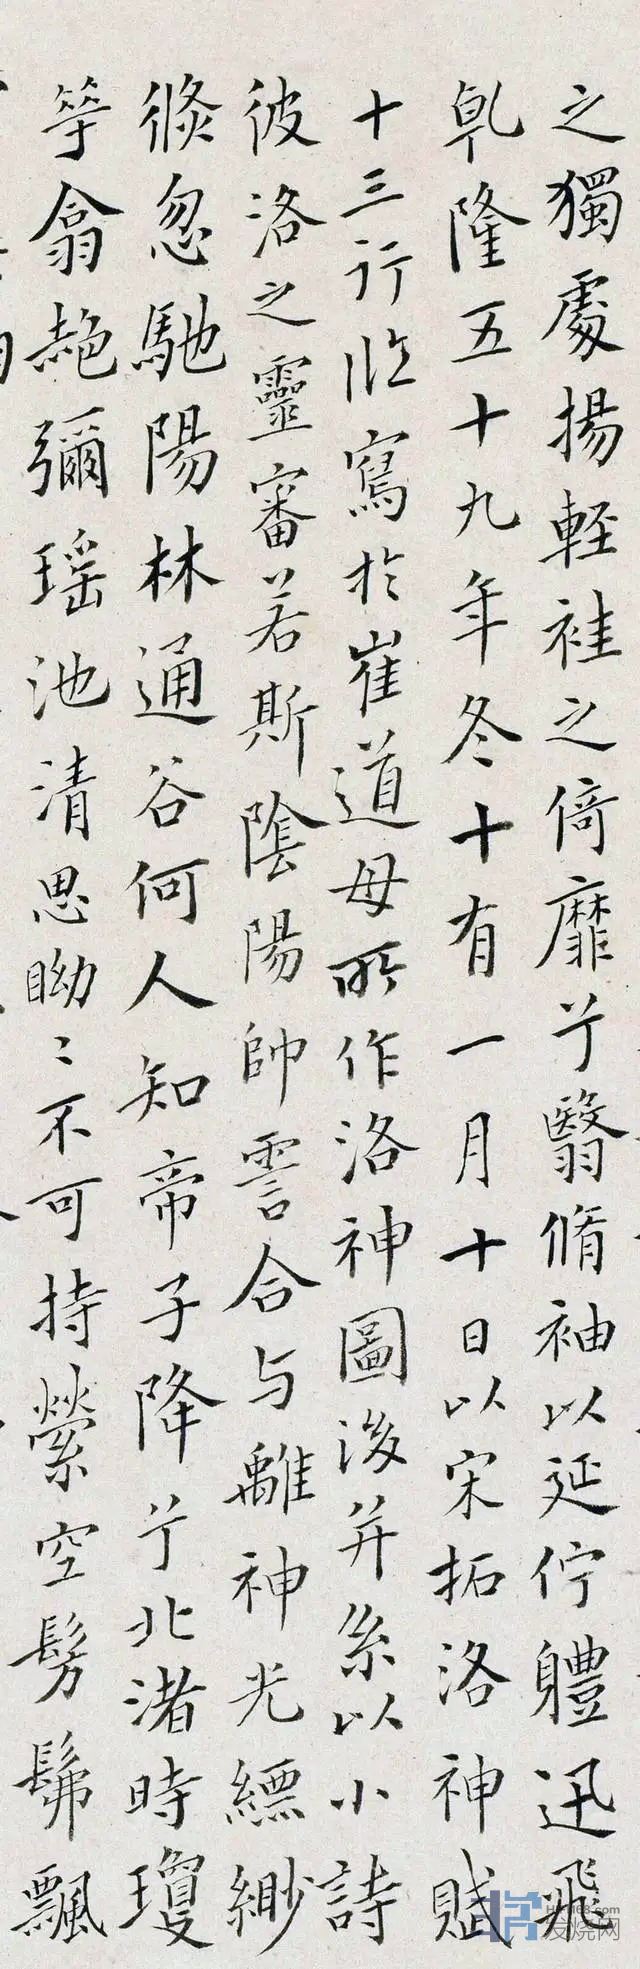 之獨處揚輕袿之倚靡兮翳脩袖以延佇體迅飛
乾隆五十九年冬十有一月十日以宋拓洛神賦
十三行臨寫於崔道母所作洛神圖後并系以小詩
彼洛之靈審若斯陰陽帥
合与離神光縹緲
倏忽馳陽林通谷何人知帝子降兮北渚時瓊
華翕赩彌瑤池清思眑〻不可持縈空髣髴飄
发烧网